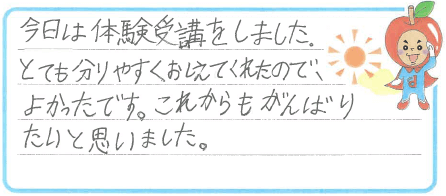 今日は体験受講をしました。
とても分りやすくおしえてくれたので、
よかったです。これからもがんばり
たいと思いました。